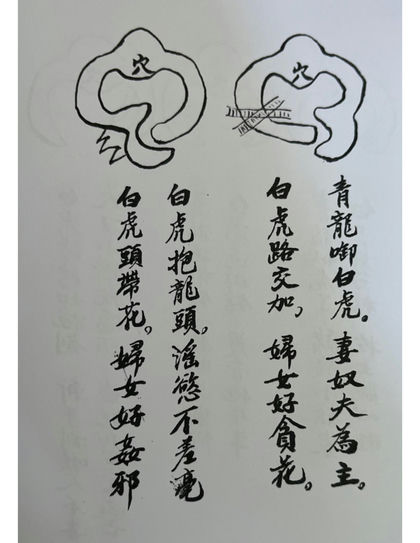 穴
青龍啣白虎。妻奴夫為主。
白虎路交加，婦女好貪花。
穴
白虎抱龍頭。淫慾不羞毫
白虎頭帶花，婦女好姦邪